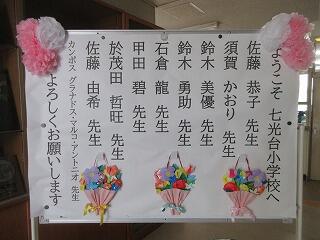 ようこそ 七光台小学校へ
佐藤 恭子 先生
須賀 かおり 先生
鈴木 美優 先生
鈴木 勇助 先生
石倉 龍 先生
甲田 碧 先生
於茂田 哲旺 先生
佐藤 由希 先生
カンポス グラナドス・マルコ・アントニオ 先生
よろしくお願いします